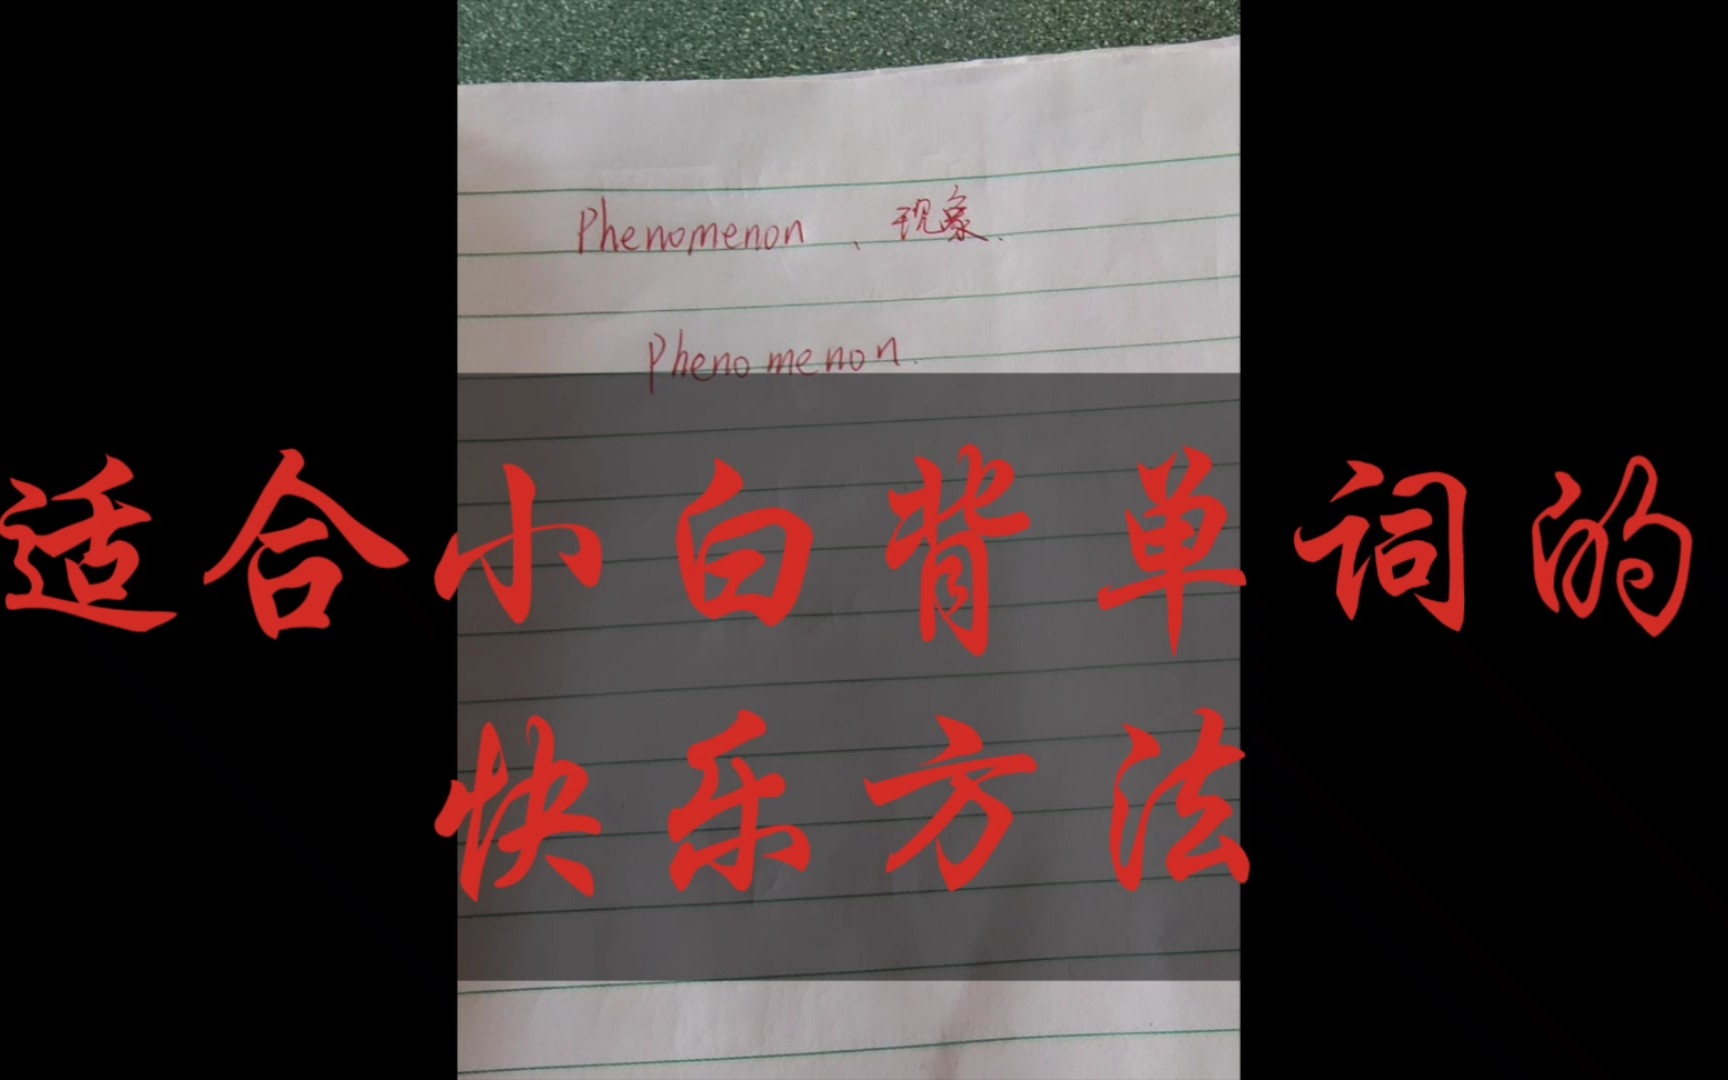 Phenomenon、现象.
Phenomenon.
适合小白背单词的
快乐方法